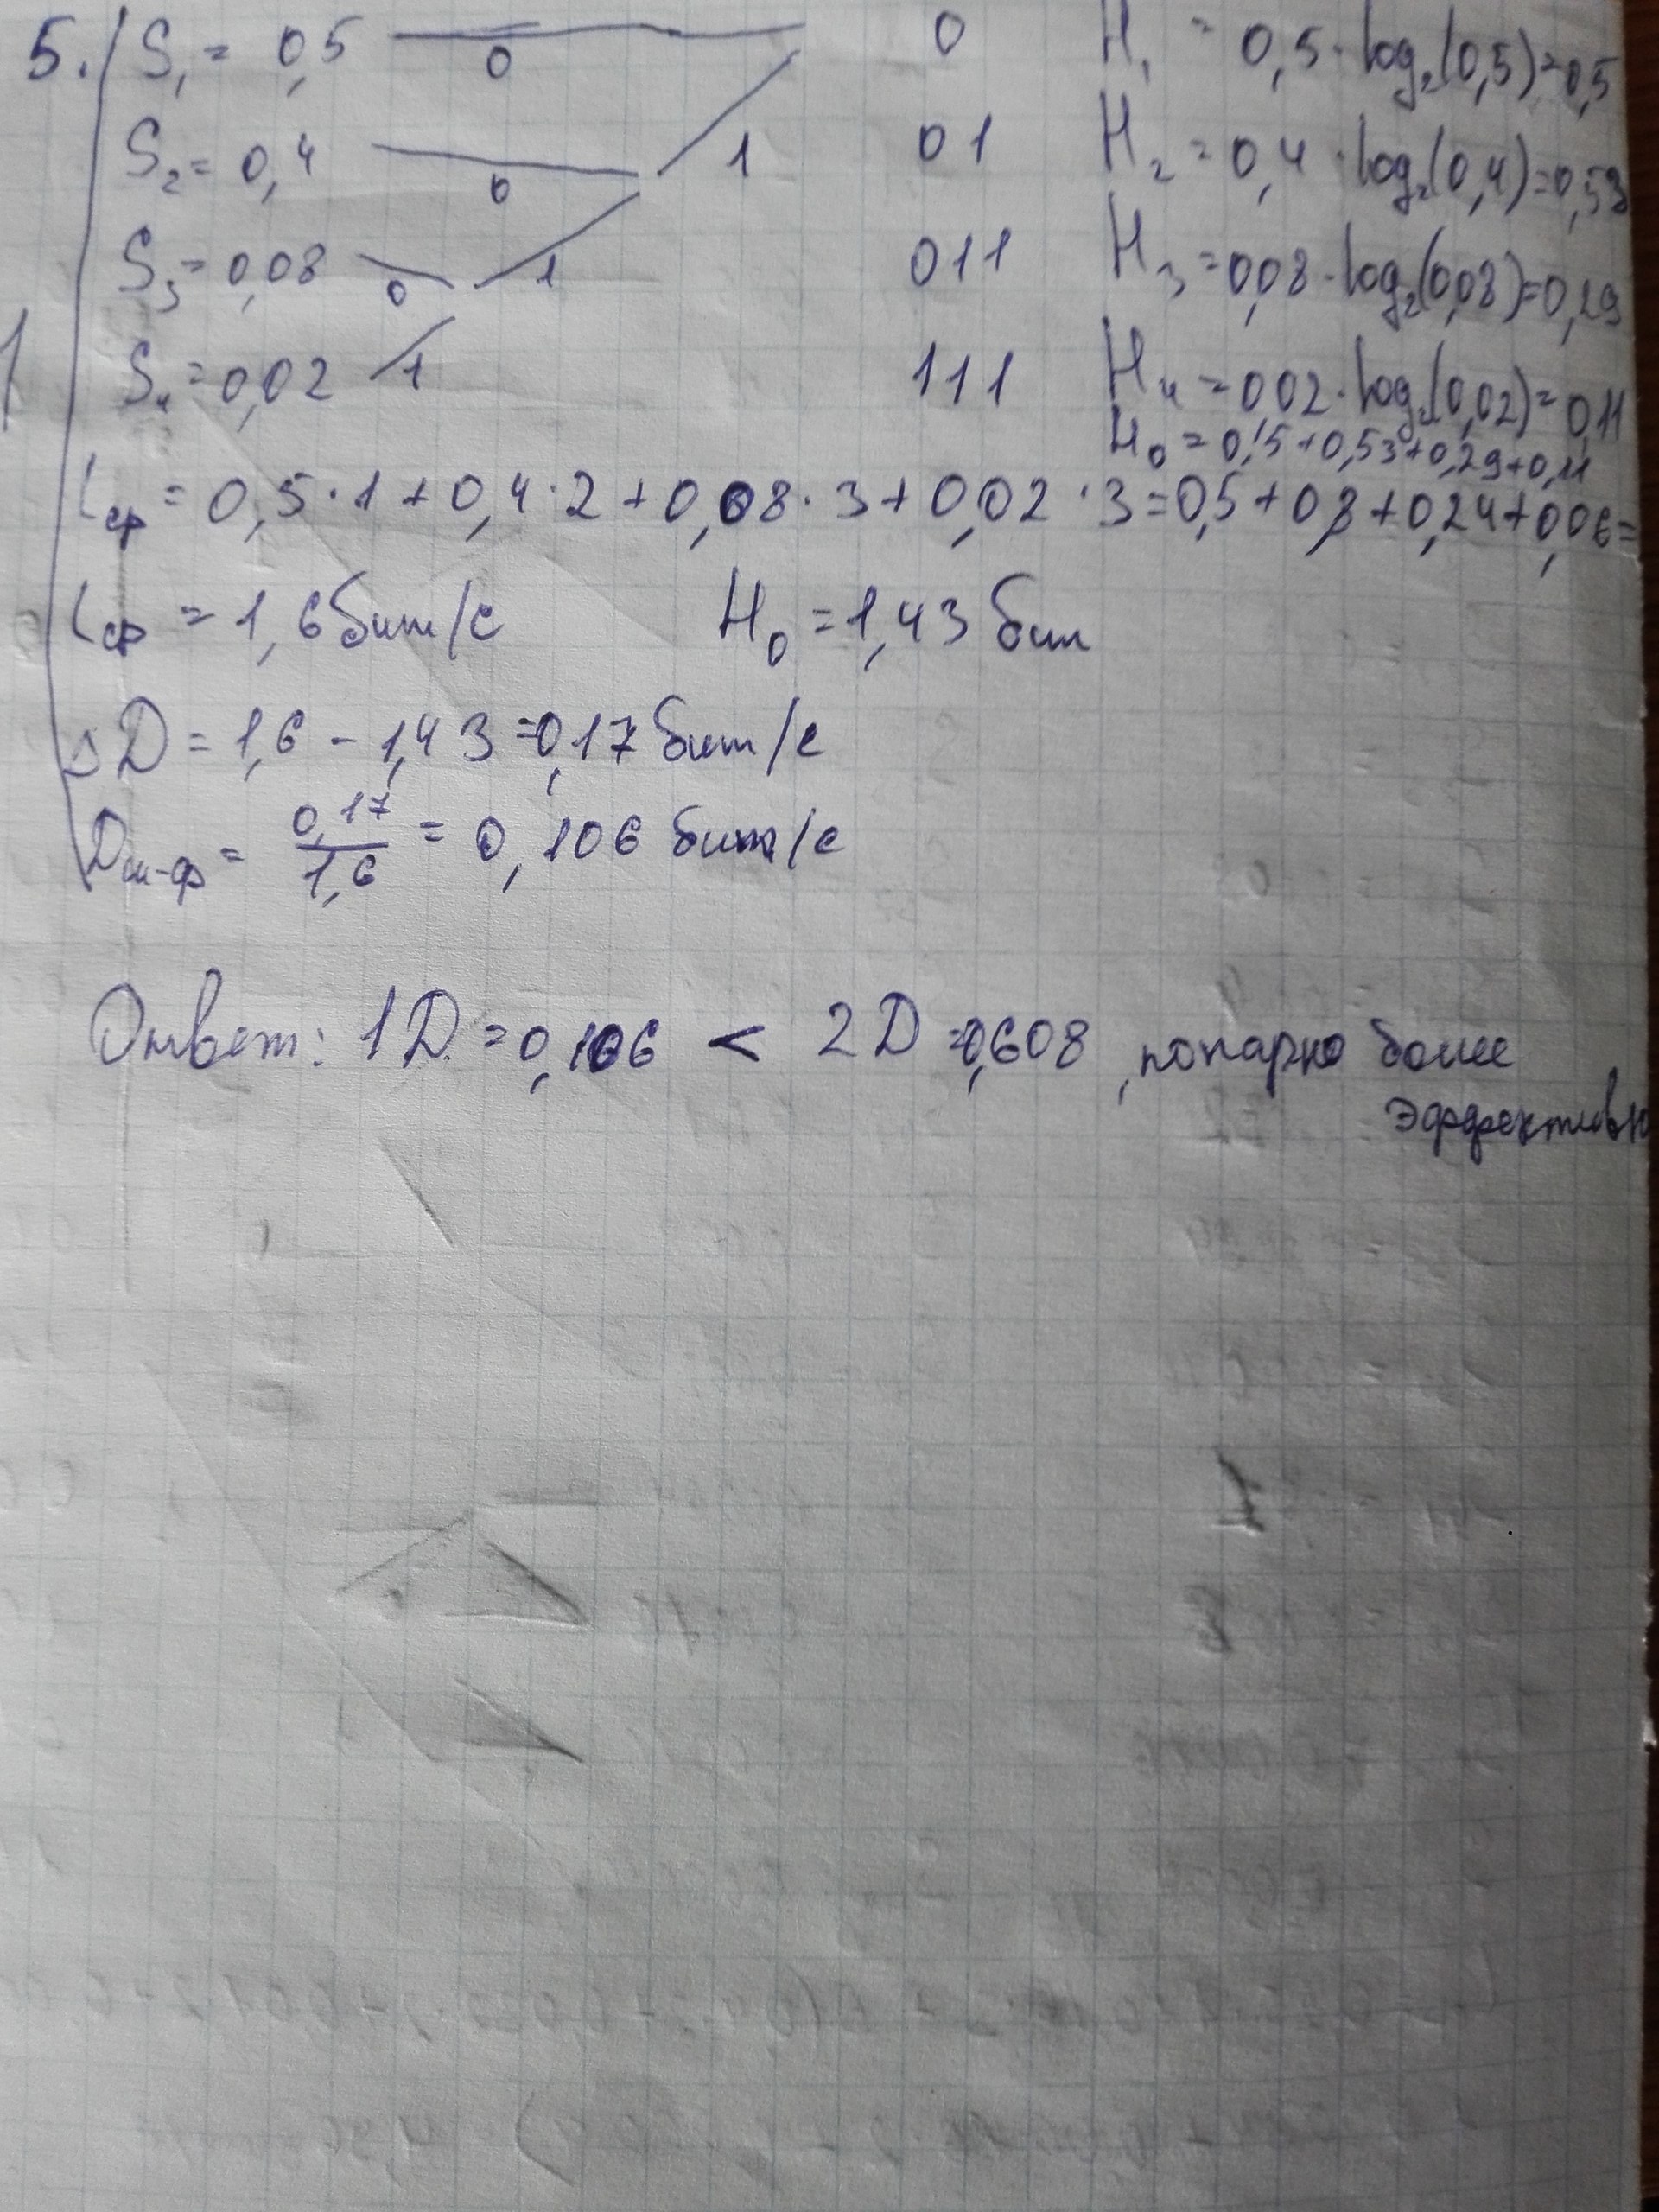 5. S₁ = 0,5 0 0 H₁ = 0,5 · log₂(0,5) = 0,5
S₂ = 0,4 0 1 01 H₂ = 0,4 · log₂(0,4) = 0,53
S₃ = 0,08 0 1 011 H₃ = 0,08 · log₂(0,08) = 0,29
S₄ = 0,02 1 111 H₄ = 0,02 · log₂(0,02) = 0,11
H₀ = 0,5 + 0,53 + 0,29 + 0,11
Lср = 0,5 · 1 + 0,4 · 2 + 0,08 · 3 + 0,02 · 3 = 0,5 + 0,8 + 0,24 + 0,06 =
Lср = 1,6 бит/с H₀ = 1,43 бит
ΔD = 1,6 - 1,43 = 0,17 бит/с
Dш-ф = 0,17/1,6 = 0,106 бит/с
Ответ: 1D = 0,106 < 2D = 0,608, попарно более
эффективн